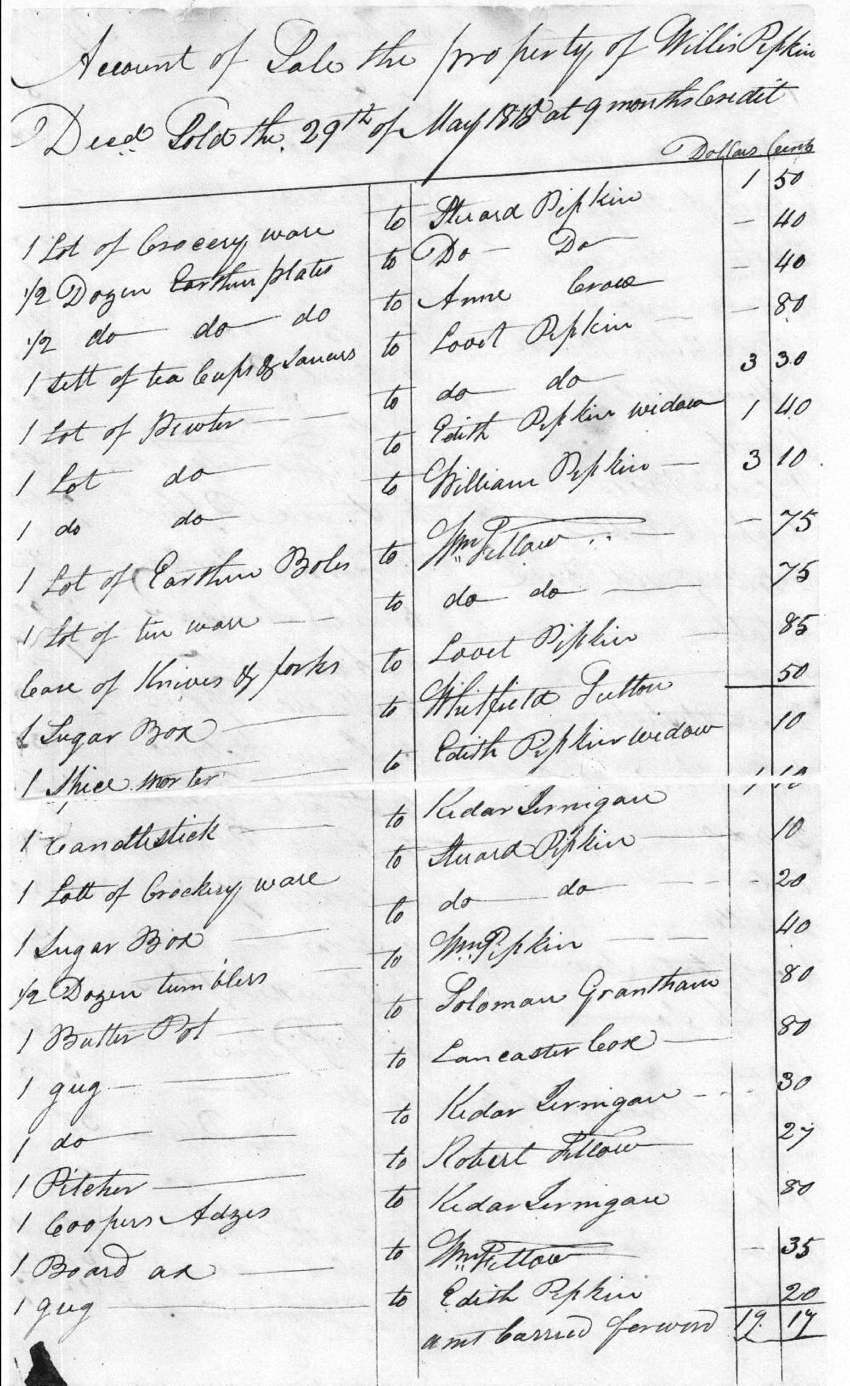 Account of Sale the property of Willis Pipkin
Decd Sold the 29th of May 1818 at 9 months Credit
Dollars Cents
1 Lot of Crocery ware to Stuard Pipkin 1 50
1/2 Dozen Earthen plates to Do Do - 40
1/2 do do do to Anne - 40
1 Sett of tea Cups & Saucers to Lovet Pipkin - 80
1 Lot of Pewter to do do 3 30
1 Lot do to Edith Pipkin widow 1 40
1 do do to William Pipkin 3 10
1 Lot of Earthen Boles to Wm Fellow - 75
1 Lot of tin ware to do do 75
Case of Knives & forks to Lovet Pipkin 85
1 Sugar Box to Whitfield Tutton 50
1 Spice morter to Edith Pipkin widow 10
1 Candlestick to Kedar Jernigan 1 10
1 Lott of Crockery ware to Stuard Pipkin 10
1 Sugar Box to do do 20
1/2 Dozen tumblers to Wm Pipkin 40
1 Butter Pot to Soloman Grantham 80
1 gug to Lancaster Cox 80
1 do to Kedar Jernigan 30
1 Pitcher to Robert Fellow 27
1 Coopers Adzes to Kedar Jernigan 80
1 Board ax to Wm Fellow - 35
1 gug to Edith Pipkin 20
amt Carried forword 19 17